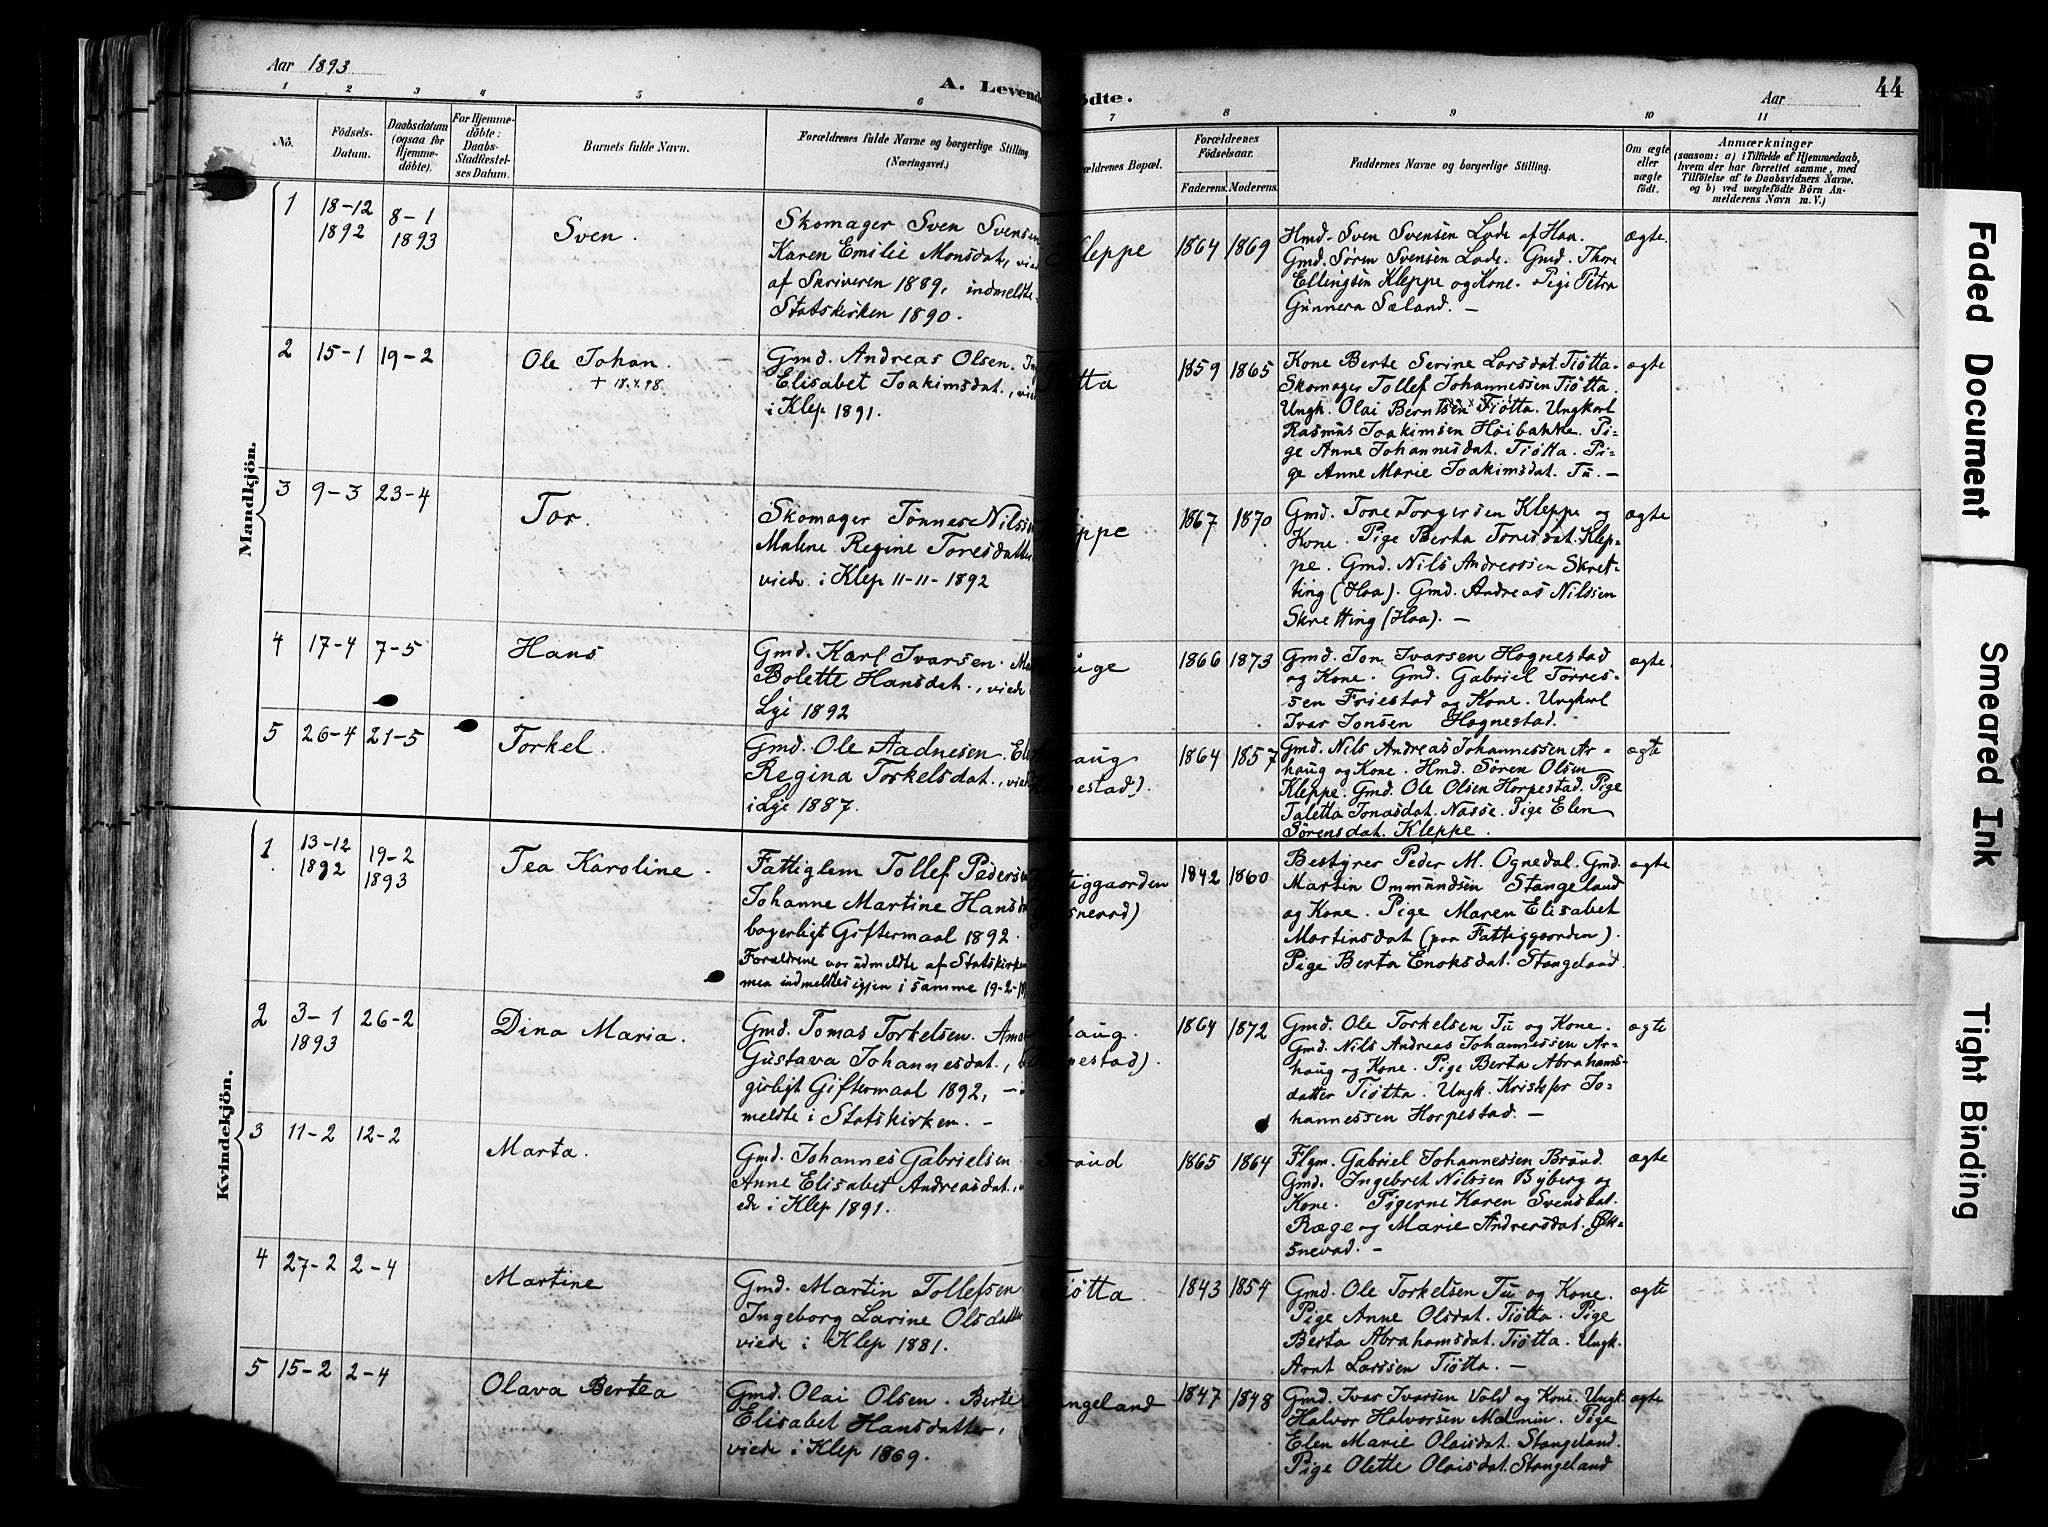 Aar 1893
A. Levende
ødte.
Aar
44
1 2 3 4 5 6 7 8 9 10 11
No.
Fødsels-
Datum.
Daabsdatum
(ogsaa for
Hjemme-
døbte).
For Hjemme-
døbte:
Daabs-
Stadfæstel-
ses Datum.
Barnets fulde Navn.
Forældrenes fulde Navne og borgerlige Stilling.
(Næringsvei.)
ældrenes Bopæl.
Forældrenes
Fødselsaar.
Faderens. Moderens.
Faddernes Navne og borgerlige Stilling.
Om ægte
eller
uægte
født.
Anmærkninger
(saasom: a) i Tilfælde af Hjemmedaab,
hvem der har forrettet samme, med
Tilføielse af to Daabsvidners Navne,
og b) ved uægtefødte Børn An-
melderens Navn m. V.)
Mandkjön.
1
18-12
1892
8-1
1893
Sven.
Skomager Sven Svensen
Karen Emilie Monsdat, vied
af Skriveren 1889, indmeldte
Statskirken 1890.
Kleppe
1864 1869
Hmd. Sven Svensen Lode af Haa.
Gmd. Søren Svensen Lode. Gmd. Thore
Ellingsen Kleppe og Kone. Pige Petra
Gunnera Sæland. —
ægte.
2
15-1
19-2
Ole Johan.
+ 18.4.98.
Gmd. Andreas Olsen.
Elisabet Joakimsdat., vied
i Klep 1891.
Tjøtta
1859 1865
Kone Berte Serine Larsdat. Tiøtta.
Skomager Tollef Johannessen Tiøtta.
Ungk. Olai Berntsen Tiøtta. Ungkarl
Rasmus Joakimsen Høibakke. Pi=
ge Anne Johannesdat. Tiøtta. Pi=
ge Anne Marie Joakimsdat. Tu. —
ægte
3
9-3
23-4
Tor.
Skomager Tønnes Nilssen
Malene Regine Toresdatter
viede i Klep 11-11-1892
ppe
1867 1870
Gmd. Tore Torgersen Kleppe og
Kone. Pige Berta Toresdat. Klep=
pe. Gmd. Nils Andersen Skret=
ting (Haa). Gmd. Andreas Nilssen
Skretting (Haa). —
ægte
4
17-4
7-5
Hans
Gmd. Karl Ivarsen.
Bolette Hansdat., viede
Lye 1892
uge
1866 1873
Gmd. Jon Ivarsen Hognestad
og Kone. Gmd. Gabriel Torres=
sen Friestad og Kone. Ungkarl
Ivar Jonsen Hognestad.
ægte.
5
26-4
21-5
Torkel.
Gmd. Ole Aadnesen.
Regina Torkelsdat., vied
i Lye 1887.
aug
pestad).
1864 1857
Gmd. Nils Andreas Johannessen Ar=
haug og Kone. Hmd. Søren Olsen
Kleppe. Gmd. Ole Olsen Horpestad. Pige
Taletta Jonasdat. Næsse. Pige Elen
Sørensdat. Kleppe.
ægte
Kvindekjön.
1
13-12
1892
19-2
1893
Tea Karoline.
Fattiglem Tollef Pedersen
Johanne Martine Hansd
bogerligt Giftermaal 1892.
Forældrene var udmeldte af Statskirken
men indmeldtes igjen i samme 19-2-18
iggaarden
snevad)
1842 1860
Bestyrer Peder M. Ognedal. Gmd.
Martin Ommundsen Stangeland
og Kone. Pige Maren Elisabet
Martinsdat (paa Fattiggaarden).
Pige Berta Enoksdat. Stangeland.
ægte
2
3-1
1893
26-2
Dina Maria.
Gmd. Tomas Torkelsen.
Gustava Johannesdat.,
gerligt Giftermaal 1892, —
meldte i Statskirken. —
aug.
pestad).
1864 1872
Gmd. Ole Torkelsen Tu og Kone.
Gmd. Nils Andreas Johannessen Ar=
haug og Kone. Pige Berta Abrahams=
datter Tiøtta. Ungk. Kristofer Jo=
hannessen Horpestad. —
ægte
3
11-2
12-2
Marta.
Gmd. Johannes Gabrielsen.
Anne Elisabet Andreasdat.,
ede i Klep 1891.
Braud
1865 1864
Flgm. Gabriel Johannessen Braud.
Gmd. Ingebret Nilssen Byberg og
Kone. Pigerne Karen Svensdat.
Ræge og Marie Andreasdat. Øk=
snevad. —
ægte
4
27-2
2-4
Martine
Gmd. Martin Tollefsen.
Ingeborg Larine Olsdatter
viede i Klep 1881.
Tiøtta.
1843 1854
Gmd. Ole Torkelsen Tu og Kone.
Pige Anne Olsdat. Tiøtta. Pige
Berta Abrahamsdat. Tiøtta. Ungk.
Arnt Larssen Tiøtta. —
ægte
5
15-2
2-4
Olava Bertea
Gmd. Olai Olsen. Berte
Elisabet Hansdatter,
viede i Klep 1869.
angeland
1847 1848
Gmd. Ivar Ivarsen Vold og Kone. Ungk.
Halvor Halvorsen Malmin. Pige
Elen Marie Olaisdat. Stangeland.
Pige Olette Olaisdat. Stangeland
ægte
Faded Document
Smeared Ink
Tight Binding